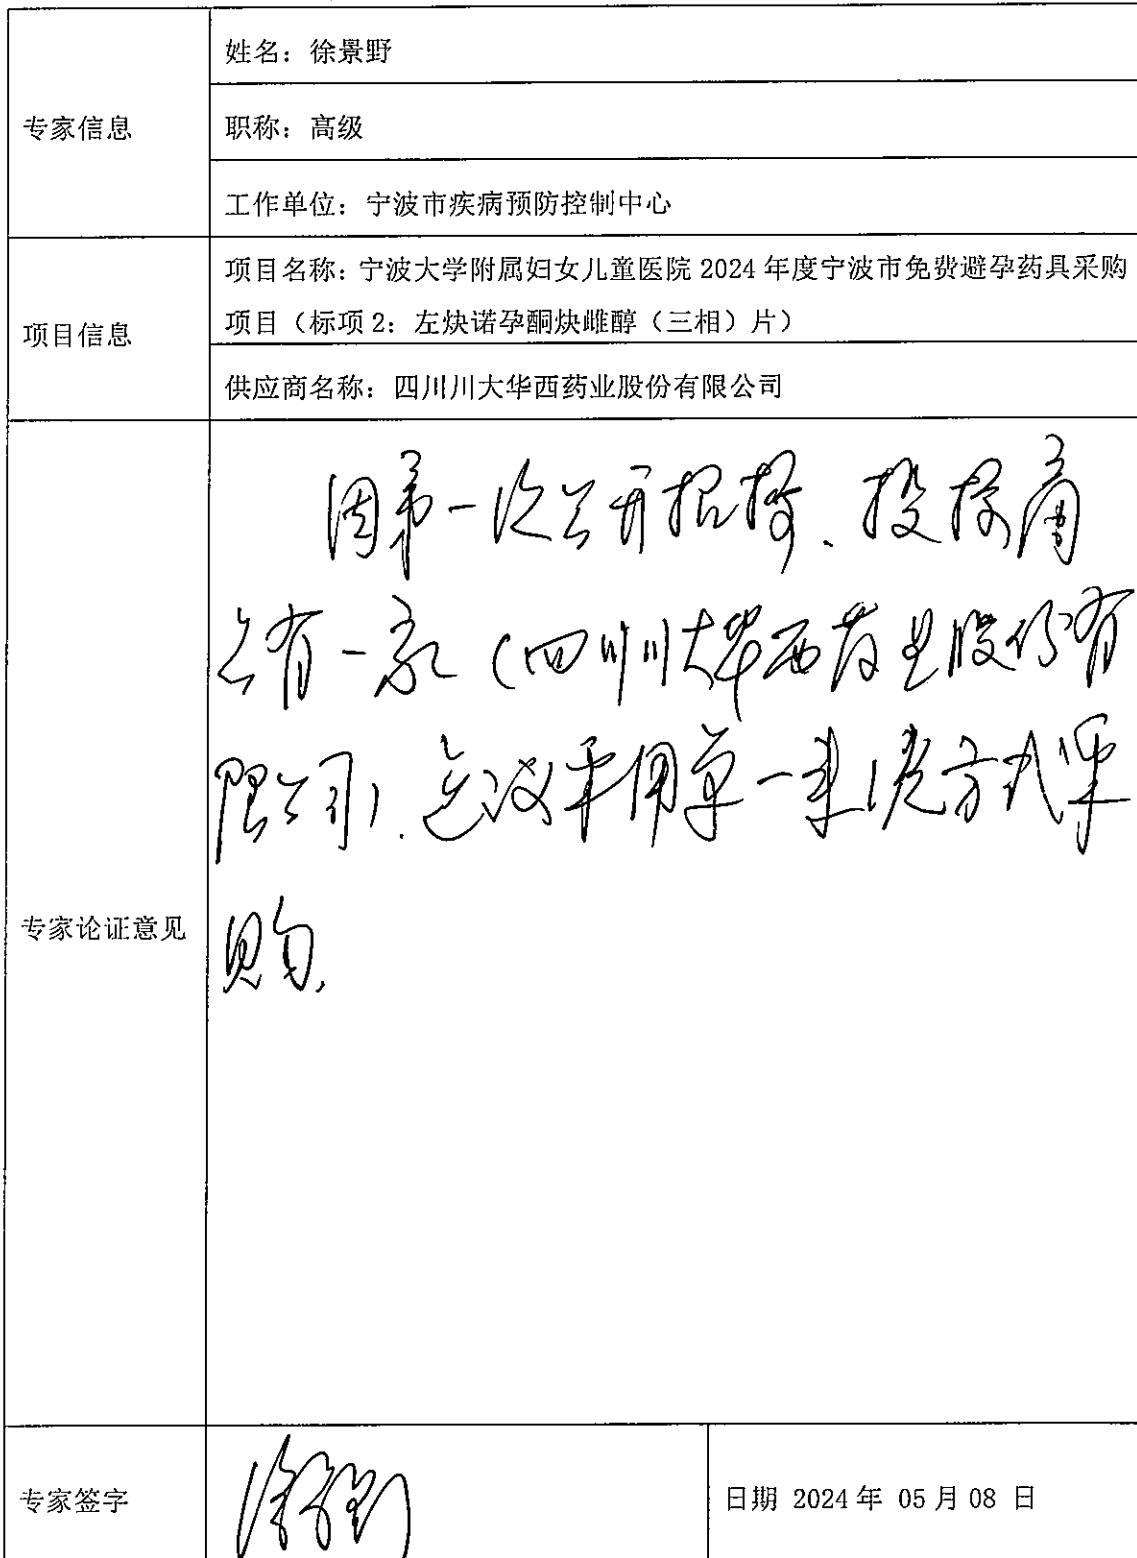 专家信息
姓名：徐景野
职称：高级
工作单位：宁波市疾病预防控制中心
项目信息
项目名称：宁波大学附属妇女儿童医院 2024 年度宁波市免费避孕药具采购
项目（标项 2：左炔诺孕酮炔雌醇（三相）片）
供应商名称：四川川大华西药业股份有限公司
专家论证意见
因第一次公开招标、投标商
只有一家（四川川大华西药业股份有
限公司）.建议采用单一来源方式采
购.
专家签字
徐景野
日期 2024 年 05 月 08 日